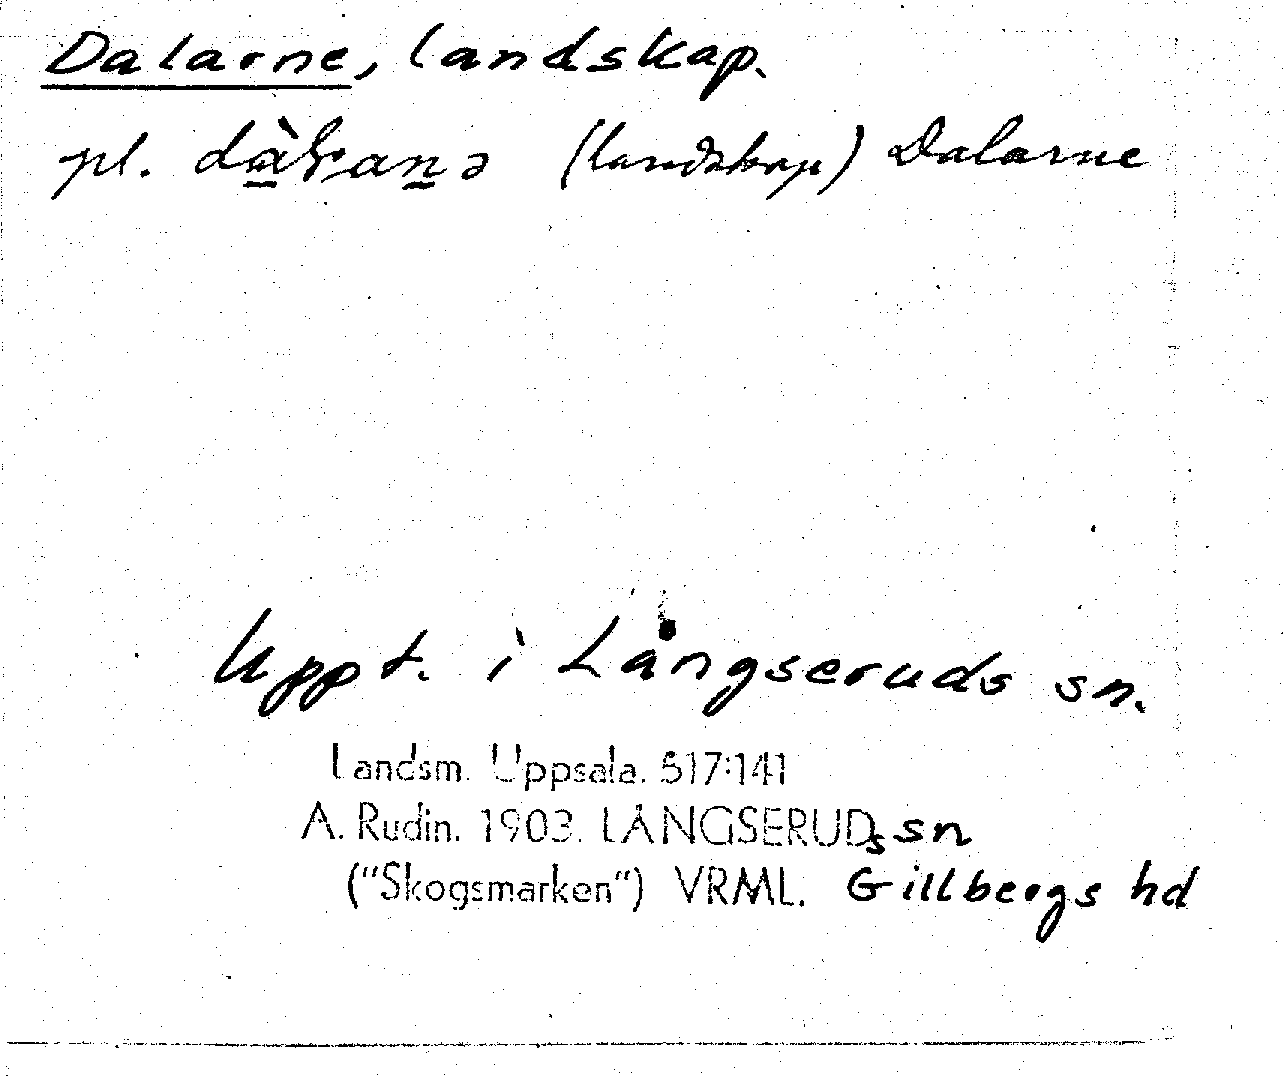 Dalarne, landskap.
pl. (landskap) Dalarne
Uppt. i Långseruds sn.
Landsm. Uppsala. 517:141
A. Rudin. 1903. LÅNGSERUDs sn
("Skogsmarken") VRML. Gillbergs hd